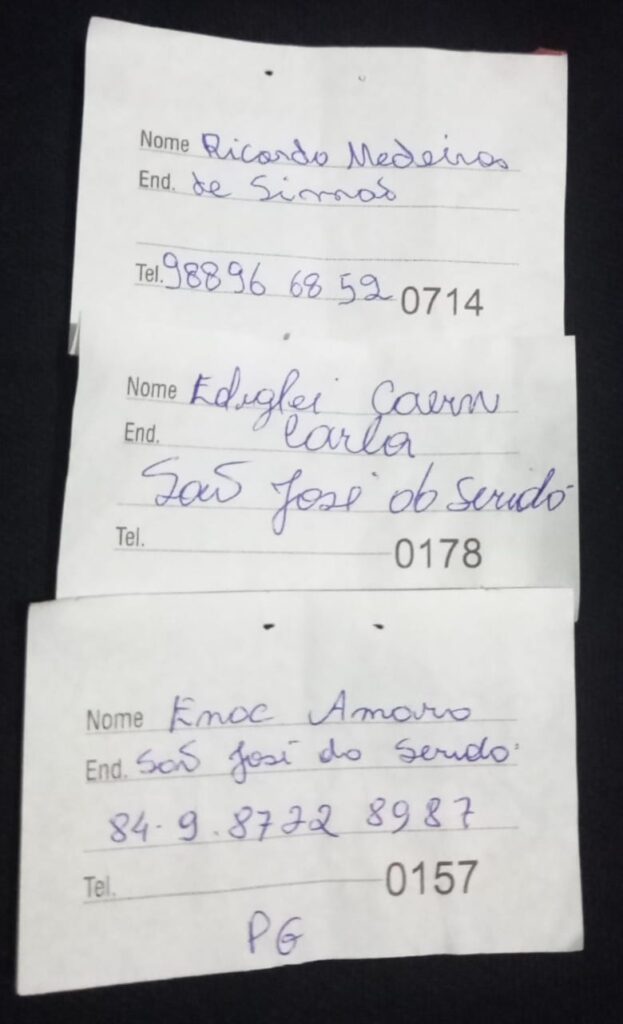 Nome Ricardo Medeiros
End. de Simnaõ
Tel. 98896 68 52 0714
Nome Ediglei Caern
End. Carla
São José do Seridó
Tel. 0178
Nome Enoc Amaro
End. São José do Seridó
84-9.8722 8987
Tel. 0157
PG